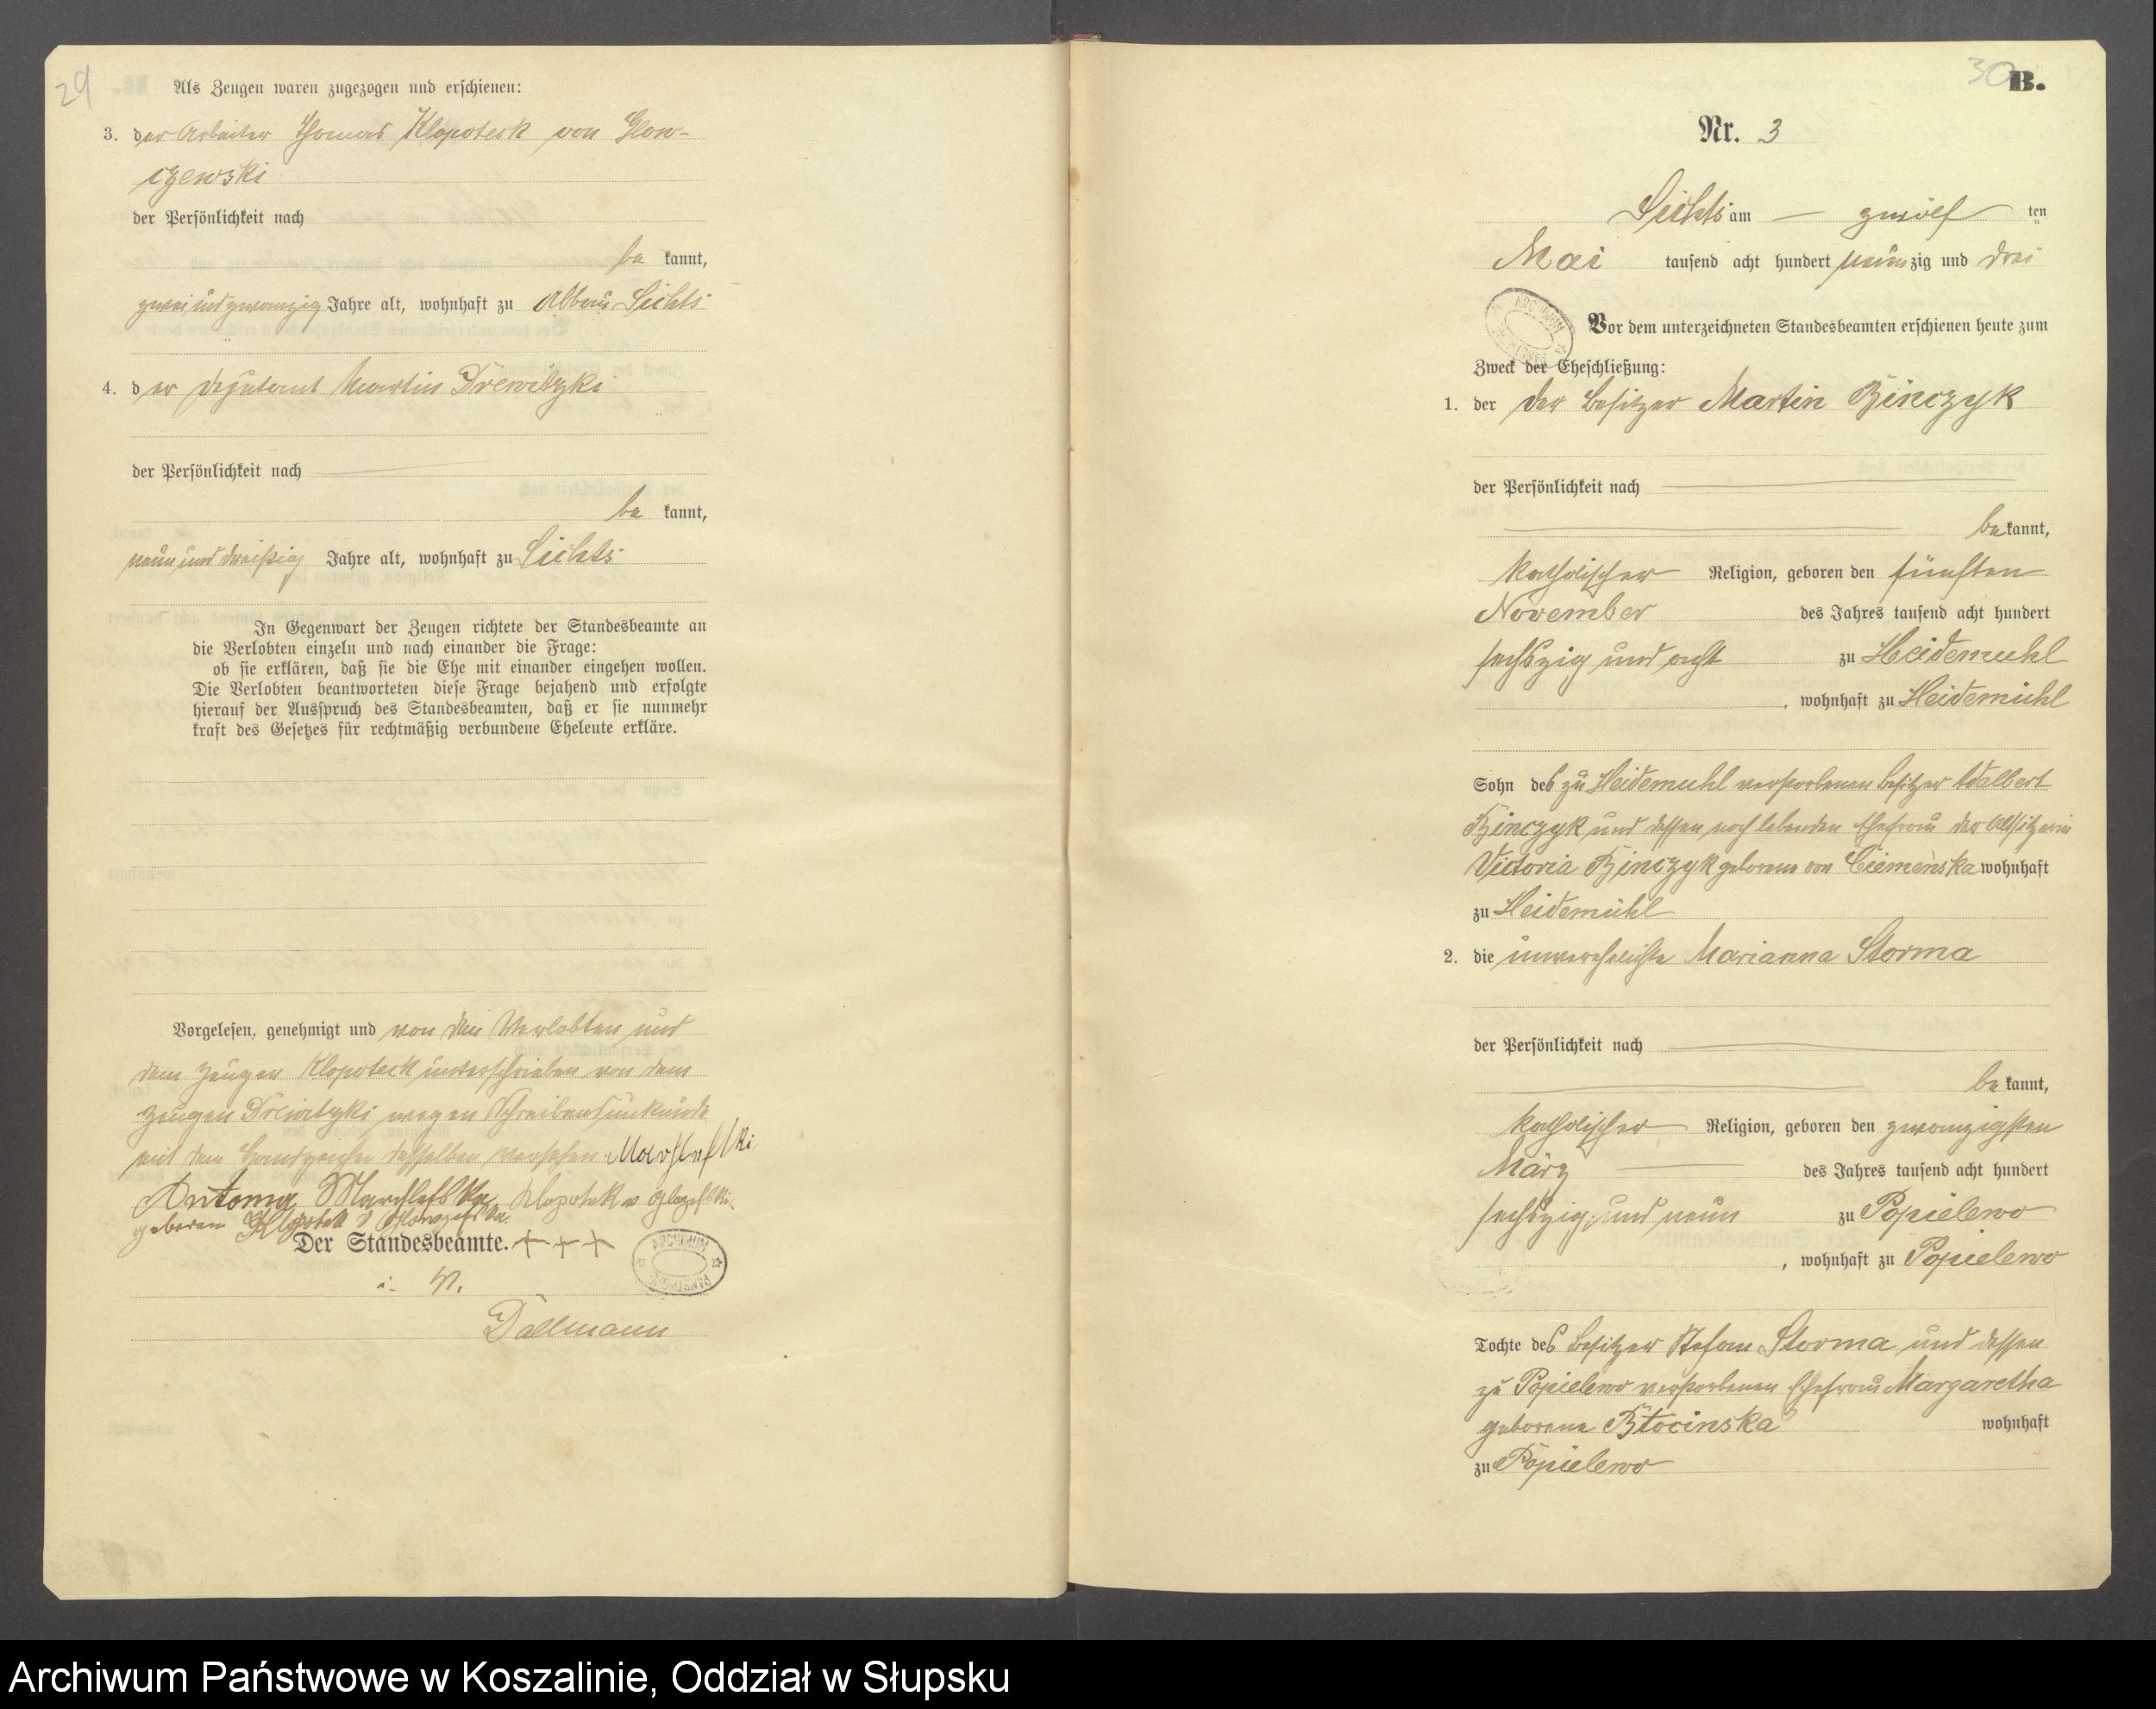 29
Als Zeugen waren zugezogen und erschienen:
3. der Arbeiter Thomas Klopoteck von Glow-
czewski
der Persönlichkeit nach
be kannt,
zwei und zwanzig Jahre alt, wohnhaft zu Abbau Lichts
4. der Deputant Martin Drewitzki
der Persönlichkeit nach
be kannt,
neun und dreißig Jahre alt, wohnhaft zu
In Gegenwart der Zeugen richtete der Standesbeamte an
die Verlobten einzeln und nach einander die Frage:
ob sie erklären, daß sie die Ehe mit einander eingehen wollen.
Die Verlobten beantworteten diese Frage bejahend und erfolgte
hierauf der Ausspruch des Standesbeamten, daß er sie nunmehr
kraft des Gesetzes für rechtmäßig verbundene Eheleute erkläre.
Vorgelesen, genehmigt und von den Verlobten und
dem Zeugen Klopoteck unterschrieben von dem
Zeugen Drewitzki wegen Schreibensunkunde
mit dem Handzeichen desselben versehen
Antonia
geboren
Der Standesbeamte. + + +
i. V.
Dallmann
30 B.
Nr. 3
am zwölf ten
Mai tausend acht hundert neunzig und drei
Vor dem unterzeichneten Standesbeamten erschienen heute zum
Zweck der Eheschließung:
1. der der Besitzer Martin Binczyk
der Persönlichkeit nach
be kannt,
katholischer Religion, geboren den fünften
November des Jahres tausend acht hundert
sechszig und acht zu Heidemühl
, wohnhaft zu Heidemühl
Sohn des zu Heidemühl verstorbenen Besitzer Adalbert
Binczyk und dessen noch lebenden Ehefrau der Altsitzerin
Victoria Binczyk geborene von Ciemenska wohnhaft
zu Heidemühl
2. die unverehelichte Marianna Storma
der Persönlichkeit nach
be kannt,
katholischer Religion, geboren den zwanzigsten
März des Jahres tausend acht hundert
sechszig und neun zu Popielewo
, wohnhaft zu Popielewo
Tochte des Besitzer Stefan Storma und dessen
zu Popielewo verstorbenen Ehefrau Margaretha
geborene wohnhaft
zu Popielewo
Archiwum Państwowe w Koszalinie, Oddział w Słupsku